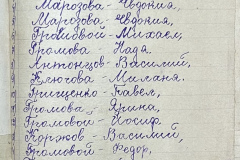 Марозова - Евдокия,
Марозова - Евдокия,
Громовой - Михаел,
Громова - Надя.
Антонцов - Василий
Клюгова - Милания.
Грищенко - Павел,
Громова - Ярина,
Громовой - Иосиф
Коржов - Василий,
Громовой - Федор,